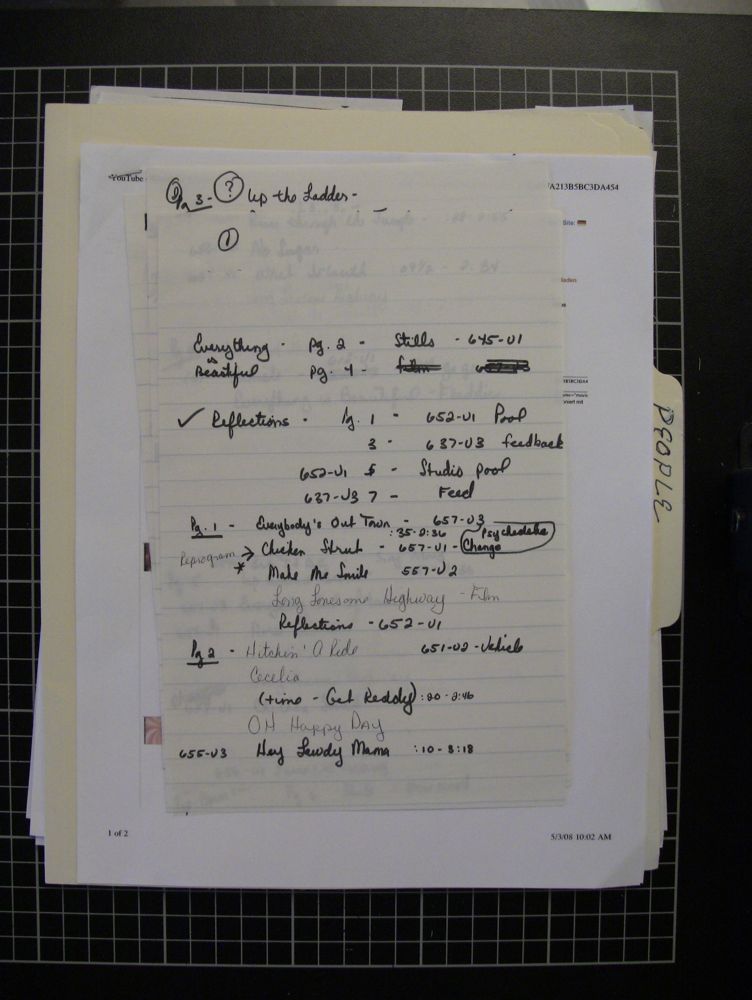 YouTube
7A213B5BC3DA454
Pg 3 - ? Up the Ladder -
1
Site:
laden
Everything - Pg. 2 - Stills - 645-U1
is
Beautiful Pg. 4 - film
✓ Reflections - Pg. 1 - 652-U1 Pool
3 - 637-U3 feedback
652-U1 5 - Studio pool
637-U3 7 - Feed
Pg. 1 - Everybody's Out Town - 657-U3
:35-2:36 Psychedelic
Reprogram → Chicken Strut - 657-U1 - Change
* Make Me Smile 557-U2
Long Lonesome Highway - Film
Reflections - 652-U1
Pg 2 - Hitchin' A Ride 651-U2 - Vehicle
Cecelia
(time - Get Ready) :20 - 2:46
OH HAPPY DAY
655-U3 Hey Lawdy Mama :10 - 3:18
PEOPLE
1 of 2
5/3/08 10:02 AM